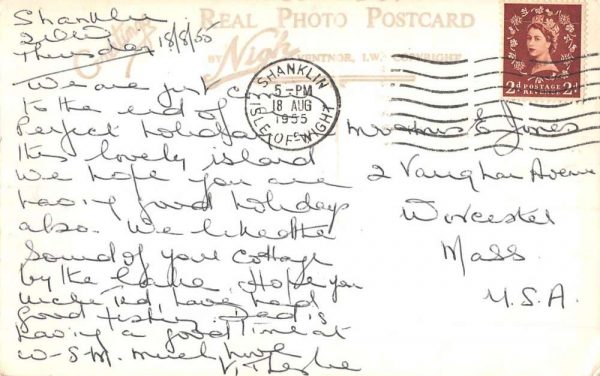 Shanklin
Thursday 18/8/55
REAL PHOTO POSTCARD
BY Nigh VENTNOR, I.W. COPYRIGHT
SHANKLIN
5 - PM
18 AUG
1955
ISLE OF WIGHT
2D POSTAGE REVENUE 2D
We are just
to the end of
Perfect holiday
this lovely island
We hope you are
having good holidays
also. We liked the
sound of your cottage
by the Lake. Hope you
have had
good fishing. Dad is
having a good time at
W-S-M. much love
V,
E Jones
2 Vaughan Avenue
Worcester
Mass.
U.S.A.